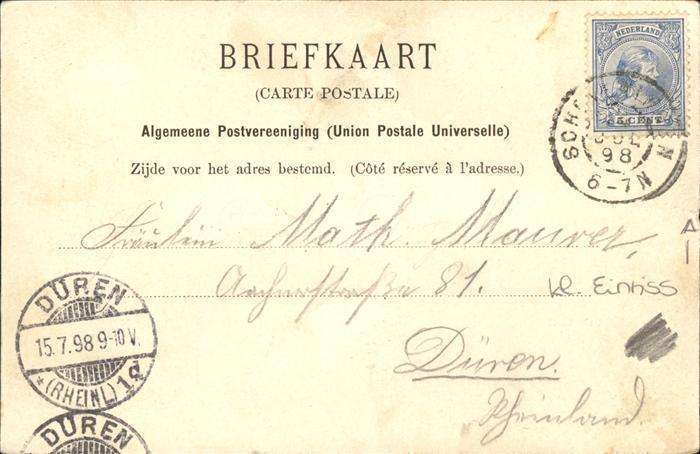 BRIEFKAART
(CARTE POSTALE)
Algemeene Postvereeniging (Union Postale Universelle)
Zijde voor het adres bestemd. (Côté réservé à l'adresse.)
NEDERLAND
5 CENT
98
6-7N
Fräulein Math. Maurer,
Aachnerstraße 81.
kl. Einriss
A
Düren.
Rheinland.
DÜREN
15.7.98 9-10 V.
*(RHEINL) 1d
DÜREN